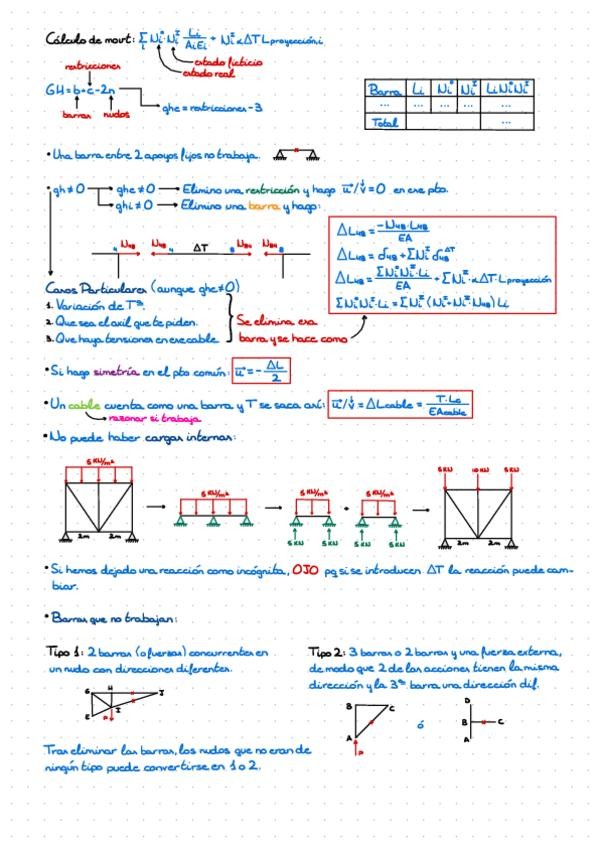 Cálculo de movt: Σ Ni⁰·Niᴵ Li/AiEi + Niᴵ αΔT L proyección,i
i
estado ficticio
estado real
restricciones
GH = b+c-2n
barras nudos
ghe = restricciones - 3
Barra Li Ni⁰ Niᴵ Li Ni⁰ Niᴵ
... ... ... ... ...
Total ...
• Una barra entre 2 apoyos fijos no trabaja.
• gh≠0 → ghe≠0 → Elimino una restricción y hago u/v=0 en ese pto.
ghi≠0 → Elimino una barra y hago:
4 N48 N48 4 ΔT 8 N84 N84 8
ΔL48 = -N48·L48/EA
ΔL48 = δ48 + ΣNiᴵ δ48^ΔT
ΔL48 = ΣNi⁰Niᴵ·Li/EA + ΣNiᴵ·αΔT·L proyección
ΣNi⁰Niᴵ·Li = ΣNiᴵ (Ni⁰+Niᴵ·N48) Li
Casos Particulares (aunque ghe≠0)
1. Variación de Tª.
2. Que sea el axil que te piden.
3. Que haya tensiones en ese cable
Se elimina esa
barra y se hace como
• Si hago simetría en el pto común: u = -ΔL/2
• Un cable cuenta como una barra y T se saca así: u/v = ΔLcable = T·Lc/EAcable
razonar si trabaja
• No puede haber cargas internas:
5 KN/m² 5 KN/m² 5 KN/m² 5 KN/m² 5KN 10KN 5KN
2m 2m 5KN 5KN 5KN 5KN 2m 2m
• Si hemos dejado una reacción como incógnita, OJO pq si se introducen ΔT la reacción puede cam-
biar.
• Barras que no trabajan:
Tipo 1: 2 barras (o fuerzas) concurrentes en
un nudo con direcciones diferentes.
Tipo 2: 3 barras o 2 barras y una fuerza externa,
de modo que 2 de las acciones tienen la misma
dirección y la 3ª barra una dirección dif.
G H J
E P I
B C
A
P
ó
D
B C
A
Tras eliminar las barras, los nudos que no eran de
ningún tipo puede convertirse en 1 o 2.